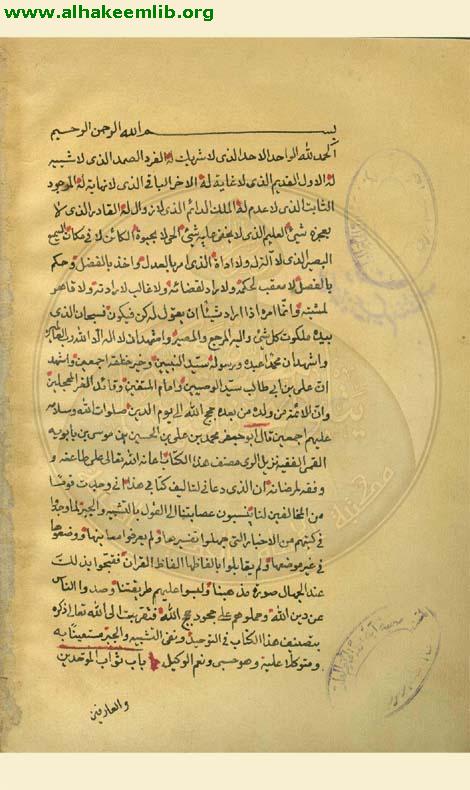 www.alhakeemlib.org
بسم الله الرحمن الرحيم
الحمد لله الواحد الاحد الذى لا شريك له الفرد الصمد الذى لا شبيه
له الاول القديم الذى لا غاية له الاخر الباقى الذى لا نهاية له الموجود
الثابت الذى لا عدم له الملك الدائم الذى لا زوال له القادر الذى لا
يعجزه شئ العليم الذى لا يخفى عليه شئ الحى لا بحيوة الكائن لا فى مكان السميع
البصير الذى لا الة له ولا اداة الذى امر بالعدل واخذ بالفضل وحكم
بالفصل لا معقب لحكمه ولا راد لقضائه ولا غالب لارادته ولا قاهر
لمشيته وانما امره اذا اراد شيئا ان يقول له كن فيكون فسبحان الذى
بيده ملكوت كل شئ واليه المرجع والمصير واشهد ان لا اله الا الله رب العالمين
واشهد ان محمدا عبده ورسوله سيد النبيين وخير خلقه اجمعين واشهد
ان على بن ابى طالب سيد الوصيين وامام المتقين وقائد الغر المحجلين
وان الائمة من ولده من بعده حجج الله الى يوم الدين صلوات الله وسلامه
عليهم اجمعين قال ابو جعفر محمد بن على بن الحسين بن موسى بن بابويه
القمى الفقيه نزيل الرى مصنف هذا الكتاب اعانه الله تعالى على طاعته و
وفقه لمرضاته ان الذى دعانى لتاليف كتابى هذا انى وجدت قوما
من المخالفين لنا ينسبون عصابتنا الى القول بالتشبيه والجبر لما وجدوا
فى كتبهم من الاخبار التى جهلوا تفسيرها ولم يعرفوا معانيها ووضعوها
فى غير موضعها ولم يقابلوا بالفاظها الفاظ القران فقبحوا بذلك
عند الجهال صورة مذهبنا ولبسوا عليهم طريقتنا وصدوا الناس
عن دين الله وحملوهم على جحود حجج الله فتقربت الى الله تعالى ذكره
بتصنيف هذا الكتاب فى التوحيد ونفى التشبيه والجبر مستعينا به
ومتوكلا عليه وهو حسبى ونعم الوكيل باب ثواب الموحدين
والعارفين